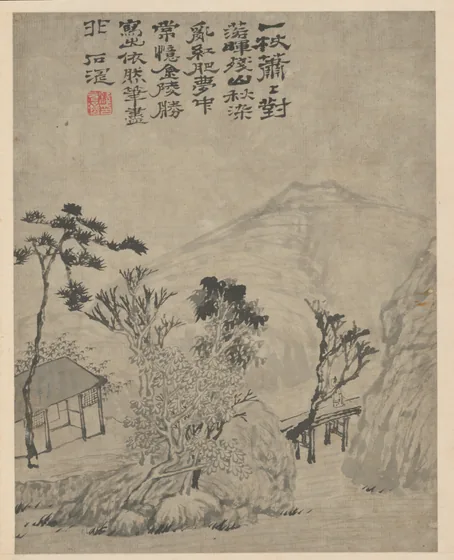 一枝蕭〻對
落暉殘山秋染
亂紅肥夢中
常憶金陵勝
寫出依然筆盡
非 石濤